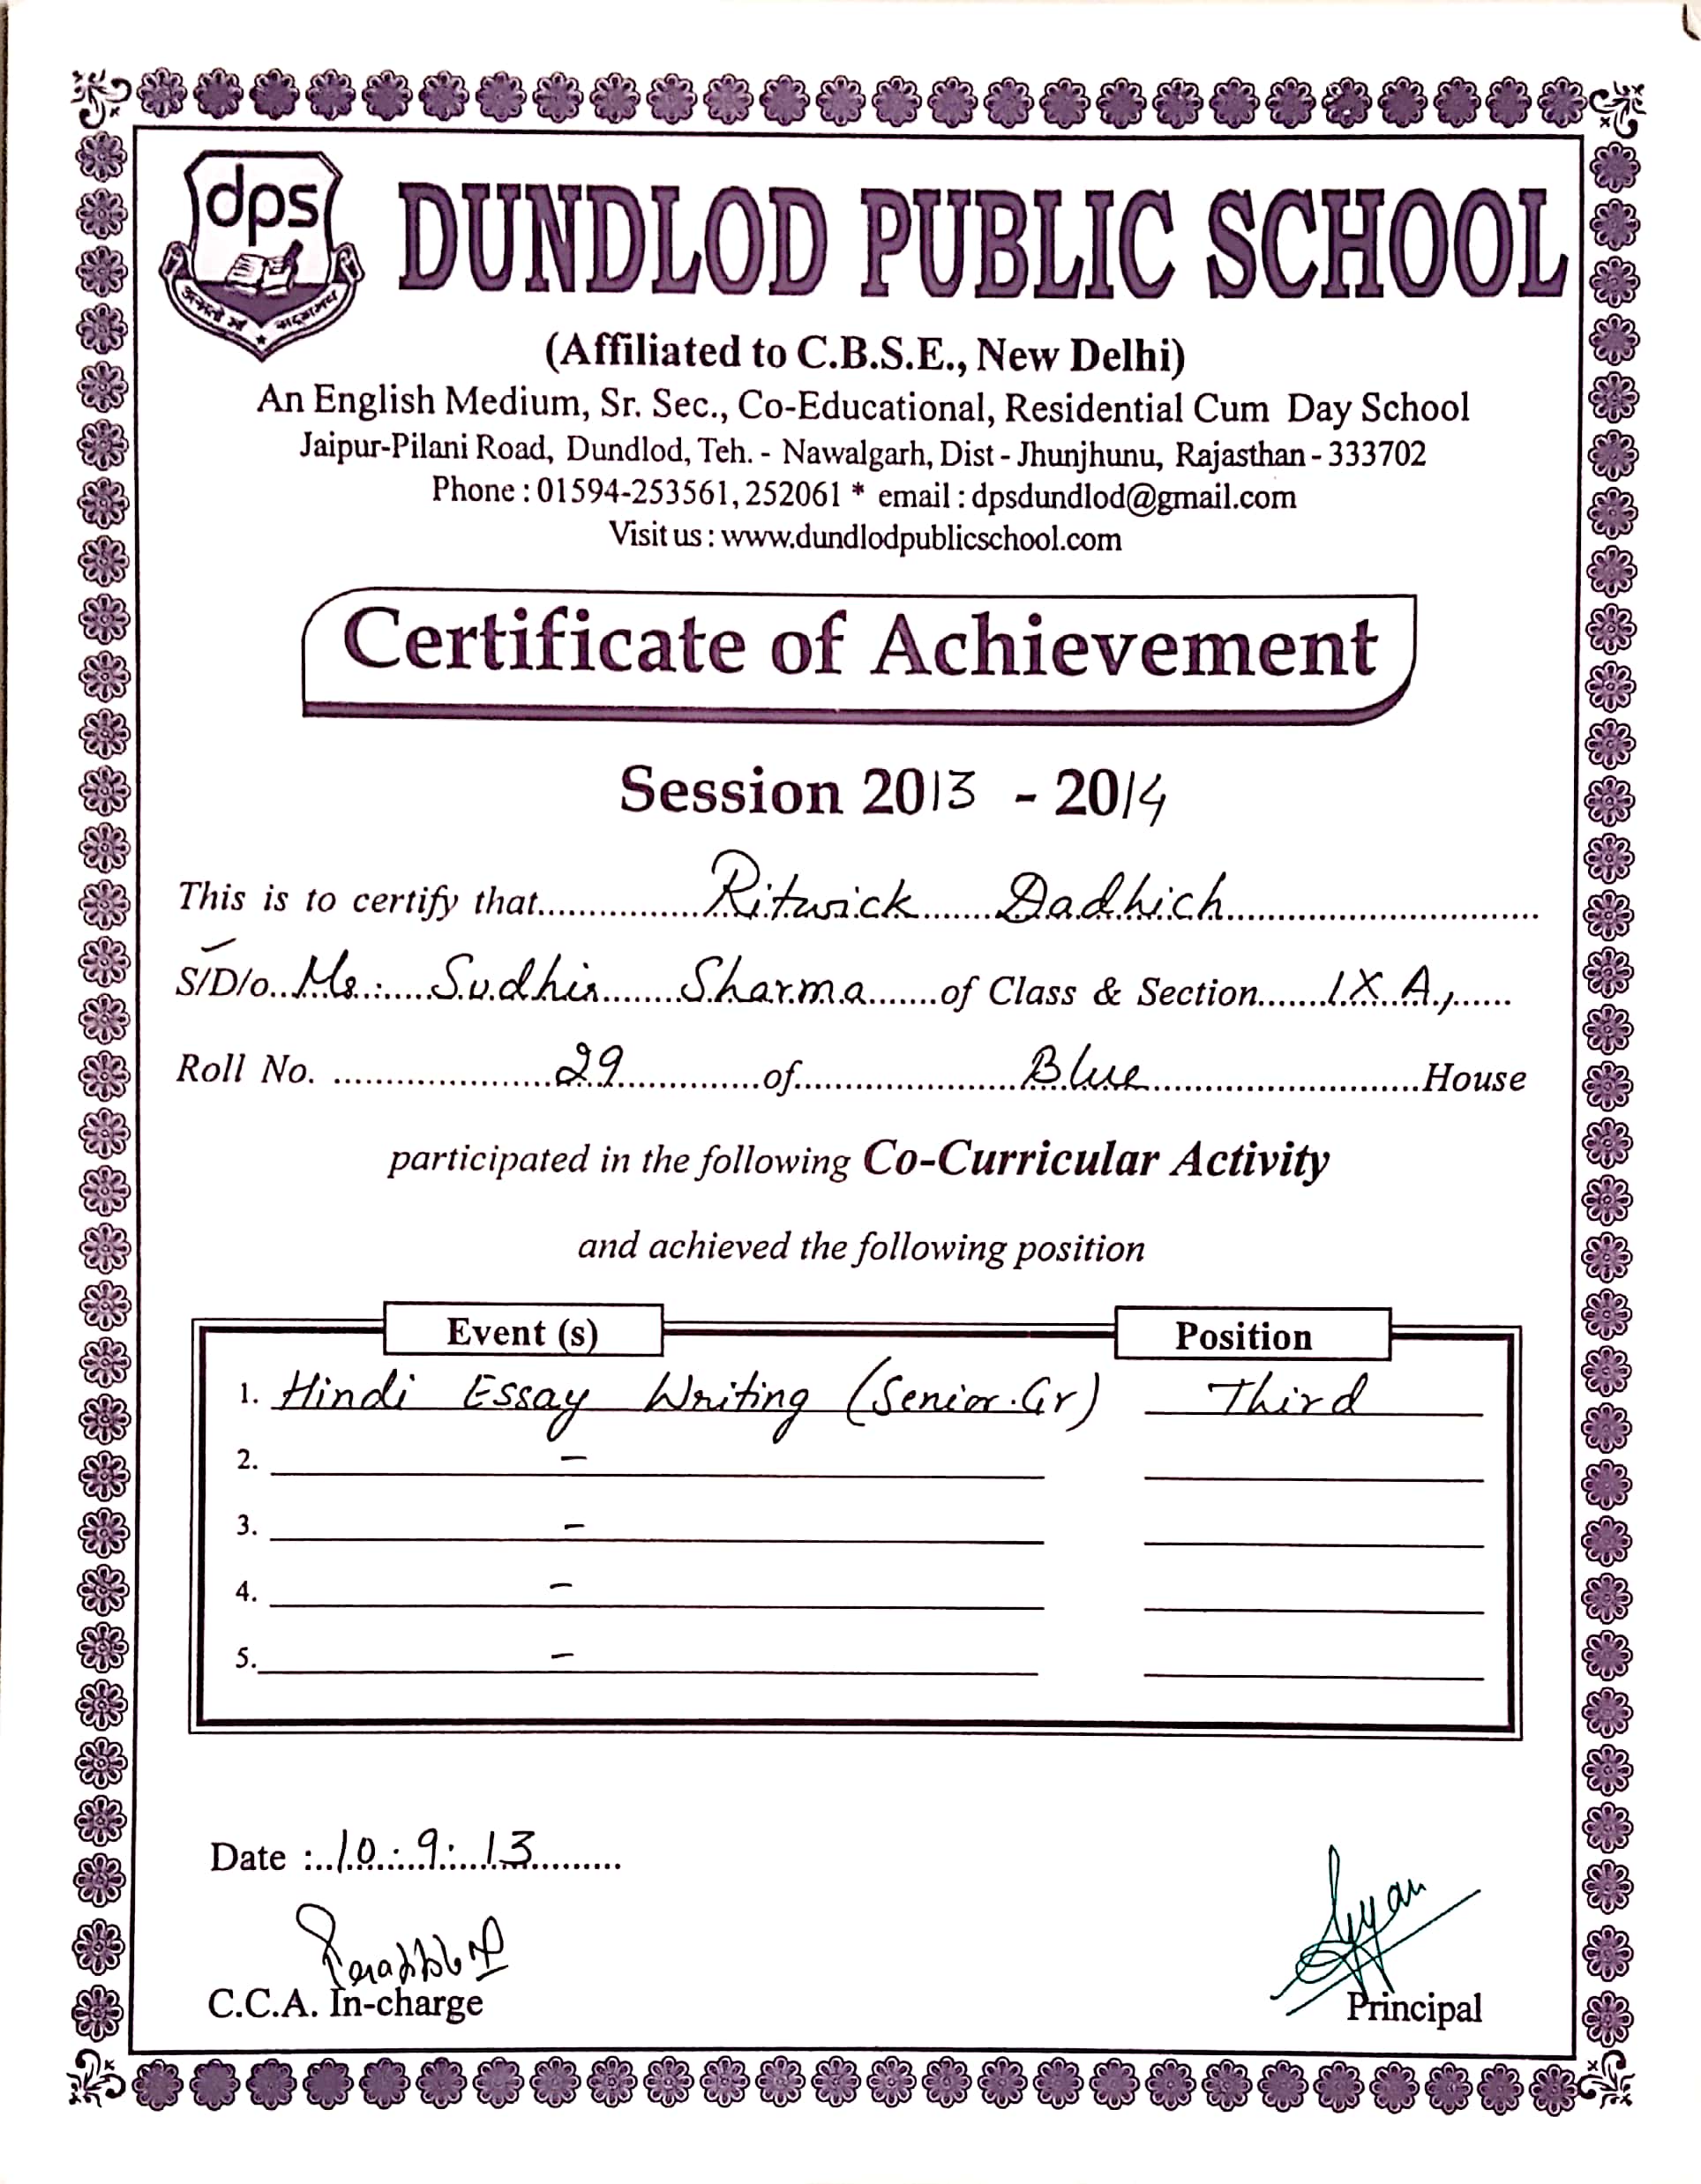 dps
DUNDLOD PUBLIC SCHOOL
(Affiliated to C.B.S.E., New Delhi)
An English Medium, Sr. Sec., Co-Educational, Residential Cum Day School
Jaipur-Pilani Road, Dundlod, Teh. - Nawalgarh, Dist - Jhunjhunu, Rajasthan - 333702
Phone : 01594-253561, 252061 * email : dpsdundlod@gmail.com
Visit us : www.dundlodpublicschool.com
Certificate of Achievement
Session 2013 - 2014
This is to certify that Ritwick Dadhich
S/D/o Mr. Sudhir Sharma of Class & Section IX A,
Roll No. 29 of Blue House
participated in the following Co-Curricular Activity
and achieved the following position
Event (s) Position
1. Hindi Essay Writing (Senior.Gr) Third
2. -
3. -
4. -
5. -
Date : 10.9.13
C.C.A. In-charge Principal